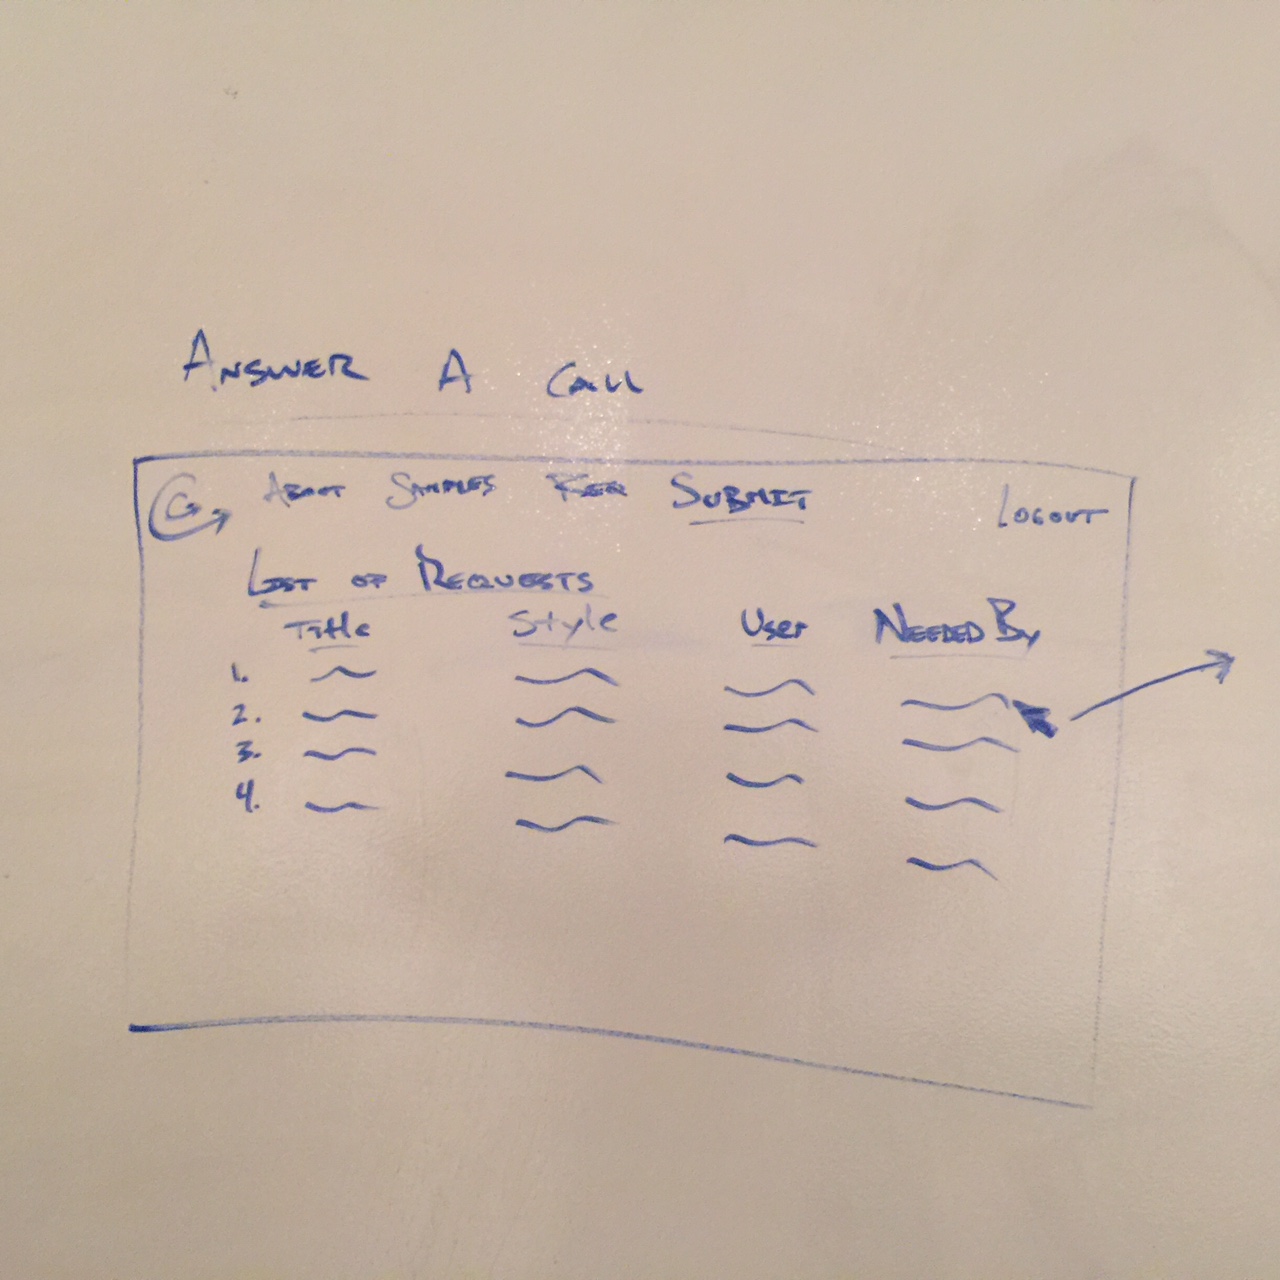 Answer A Call
About Samples Submit Logout
List of Requests
Title Style User Needed By
1.
2.
3.
4.